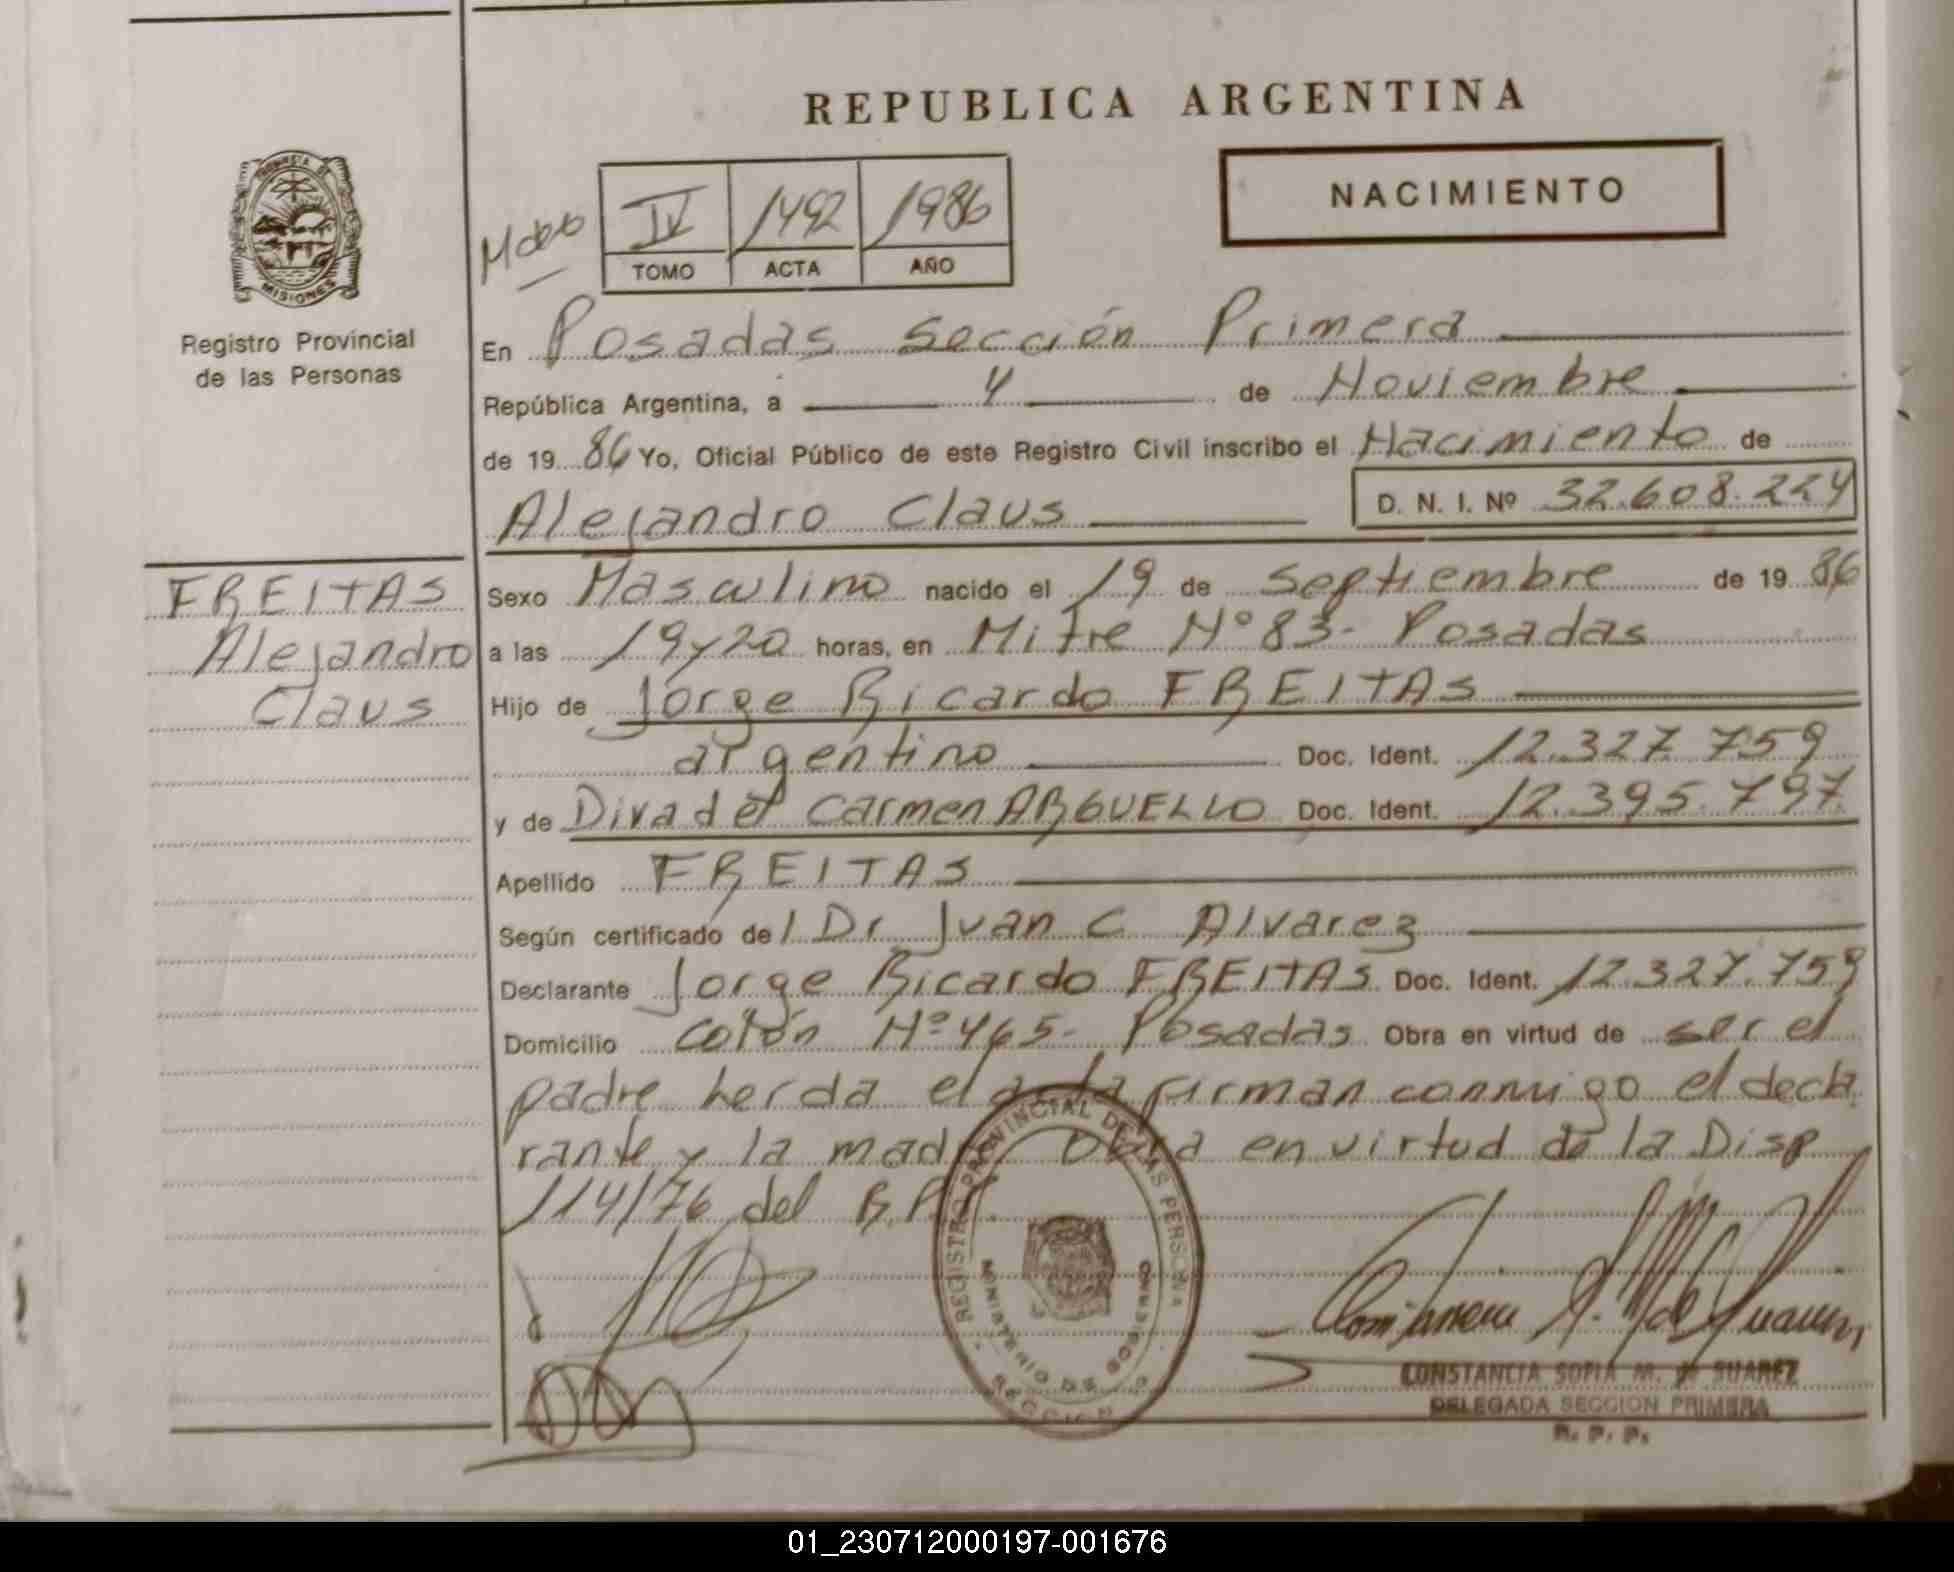 REPUBLICA ARGENTINA
NACIMIENTO
IV 1492 1986
TOMO ACTA AÑO
PROVINCIA DE
MISIONES
Registro Provincial
de las Personas
En Posadas Sección Primera
República Argentina, a 4 de Noviembre
de 1986 Yo, Oficial Público de este Registro Civil inscribo el Nacimiento de
Alejandro Claus D. N. I. Nº 32.608.224
FREITAS
Alejandro
Claus
Sexo Masculino nacido el 19 de Septiembre de 1986
a las 19y20 horas, en Mitre Nº 83- Posadas
Hijo de Jorge Ricardo FREITAS
argentino Doc. Ident. 12.327.759
y de Diva del Carmen ARGUELLO Doc. Ident. 12.395.797
Apellido FREITAS
Según certificado del Dr Juan C. Alvarez
Declarante Jorge Ricardo FREITAS Doc. Ident. 12.327.759
Domicilio Colón Nº 465- Posadas Obra en virtud de ser el
padre leida el acta firman conmigo el decla
rante y la madre Obra en virtud de la Disp
114/76 del R.P.
REGISTRO PROVINCIAL DE LAS PERSONAS
MINISTERIO DE GOBIERNO
SECCION
CONSTANCIA SOFIA M. de SUAREZ
DELEGADA SECCION PRIMERA
R. P. P.
01_230712000197-001676